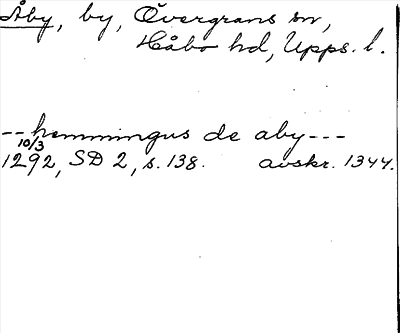 Åby, by, Övergrans sn,
Håbo hd, Upps. l.
-- hemmingus de aby ---
10/3
1292, SD 2, s. 138. avskr. 1344.